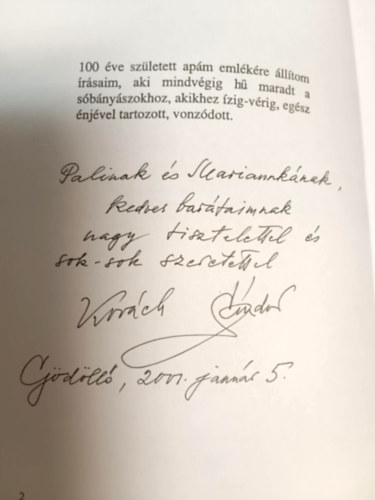 100 éve született apám emlékére állítom
írásaim, aki mindvégig hû maradt a
sóbányászokhoz, akikhez ízig-vérig, egész
énjével tartozott, vonzódott.
Palinak és Mariannkának,
kedves barátaimnak
nagy tisztelettel és
sok-sok szeretettel
Kovách Sándor
Gödöllő, 2001. január 5.
2